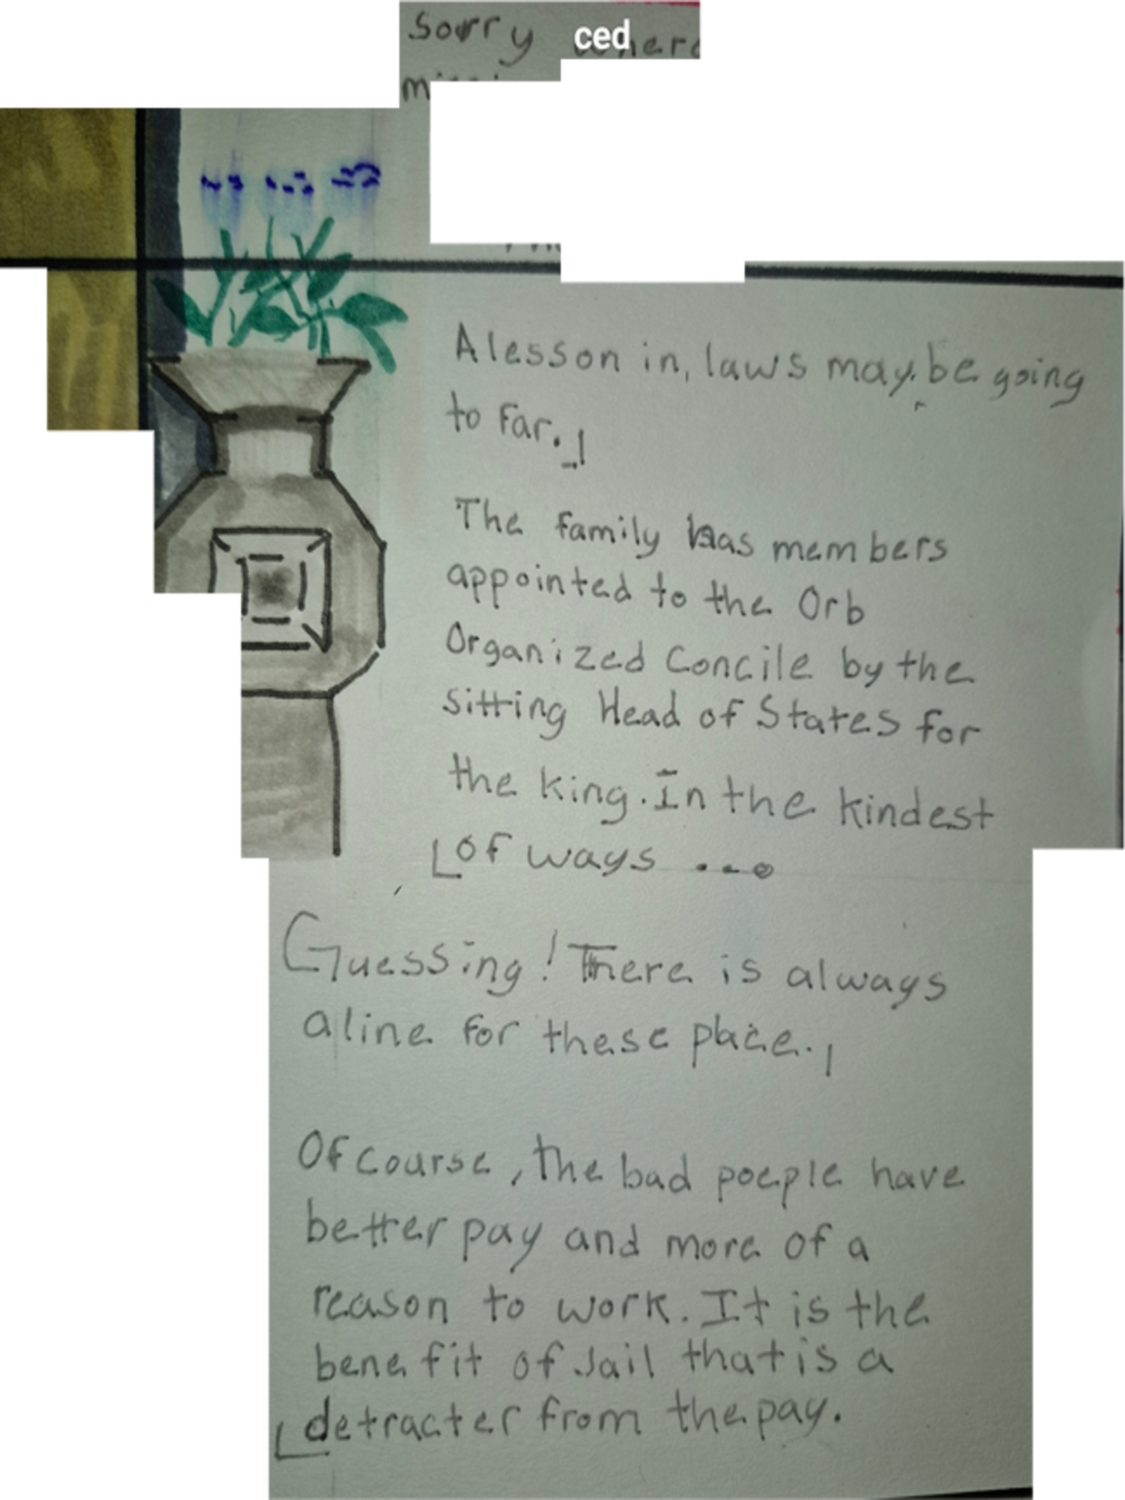 Sorry
ced
A lesson in, laws may be going
to far.
The family has members
appointed to the Orb
Organized Concile by the
sitting Head of States for
the king. In the kindest
of ways ...
Guessing! There is always
a line for these place.
Of course, the bad poeple have
better pay and more of a
reason to work. It is the
benefit of Jail that is a
detracter from the pay.